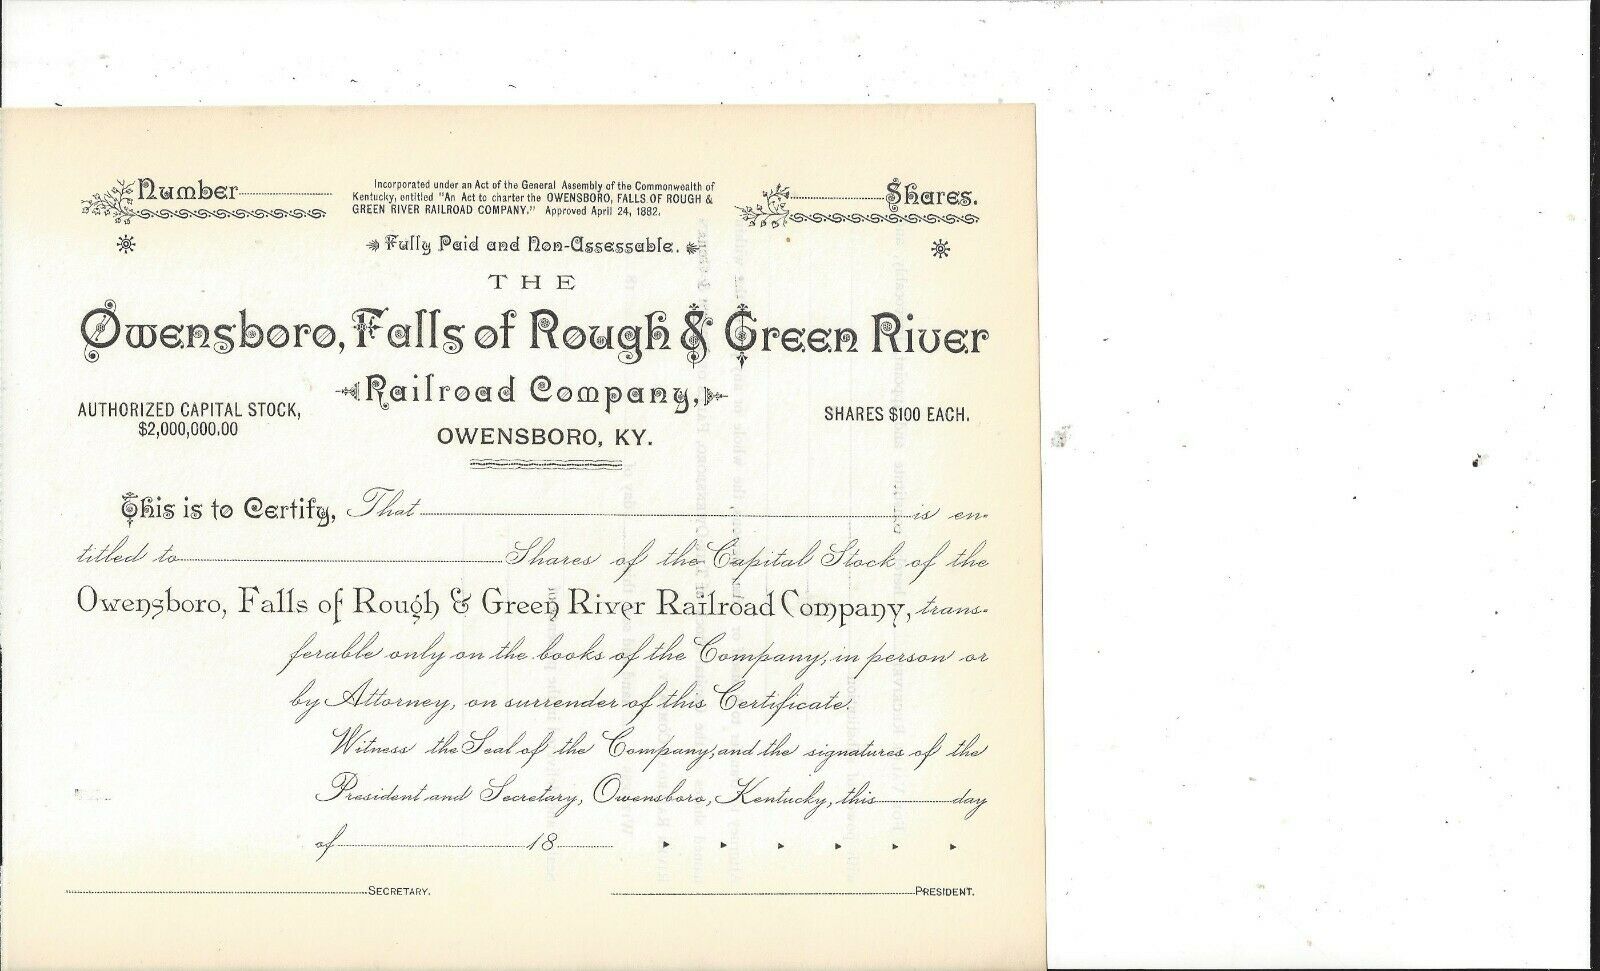 Number
Incorporated under an Act of the General Assembly of the Commonwealth of
Kentucky, entitled "An Act to charter the OWENSBORO, FALLS OF ROUGH &
GREEN RIVER RAILROAD COMPANY." Approved April 24, 1882.
Shares.
Fully Paid and Non-Assessable.
THE
Owensboro, Falls of Rough & Green River
Railroad Company,
AUTHORIZED CAPITAL STOCK,
$2,000,000.00
SHARES $100 EACH.
OWENSBORO, KY.
This is to Certify, That is en-
titled to Shares of the Capital Stock of the
Owensboro, Falls of Rough & Green River Railroad Company, trans-
ferable only on the books of the Company, in person or
by Attorney, on surrender of this Certificate.
Witness the Seal of the Company, and the signatures of the
President and Secretary, Owensboro, Kentucky, this day
of 18
SECRETARY.
PRESIDENT.